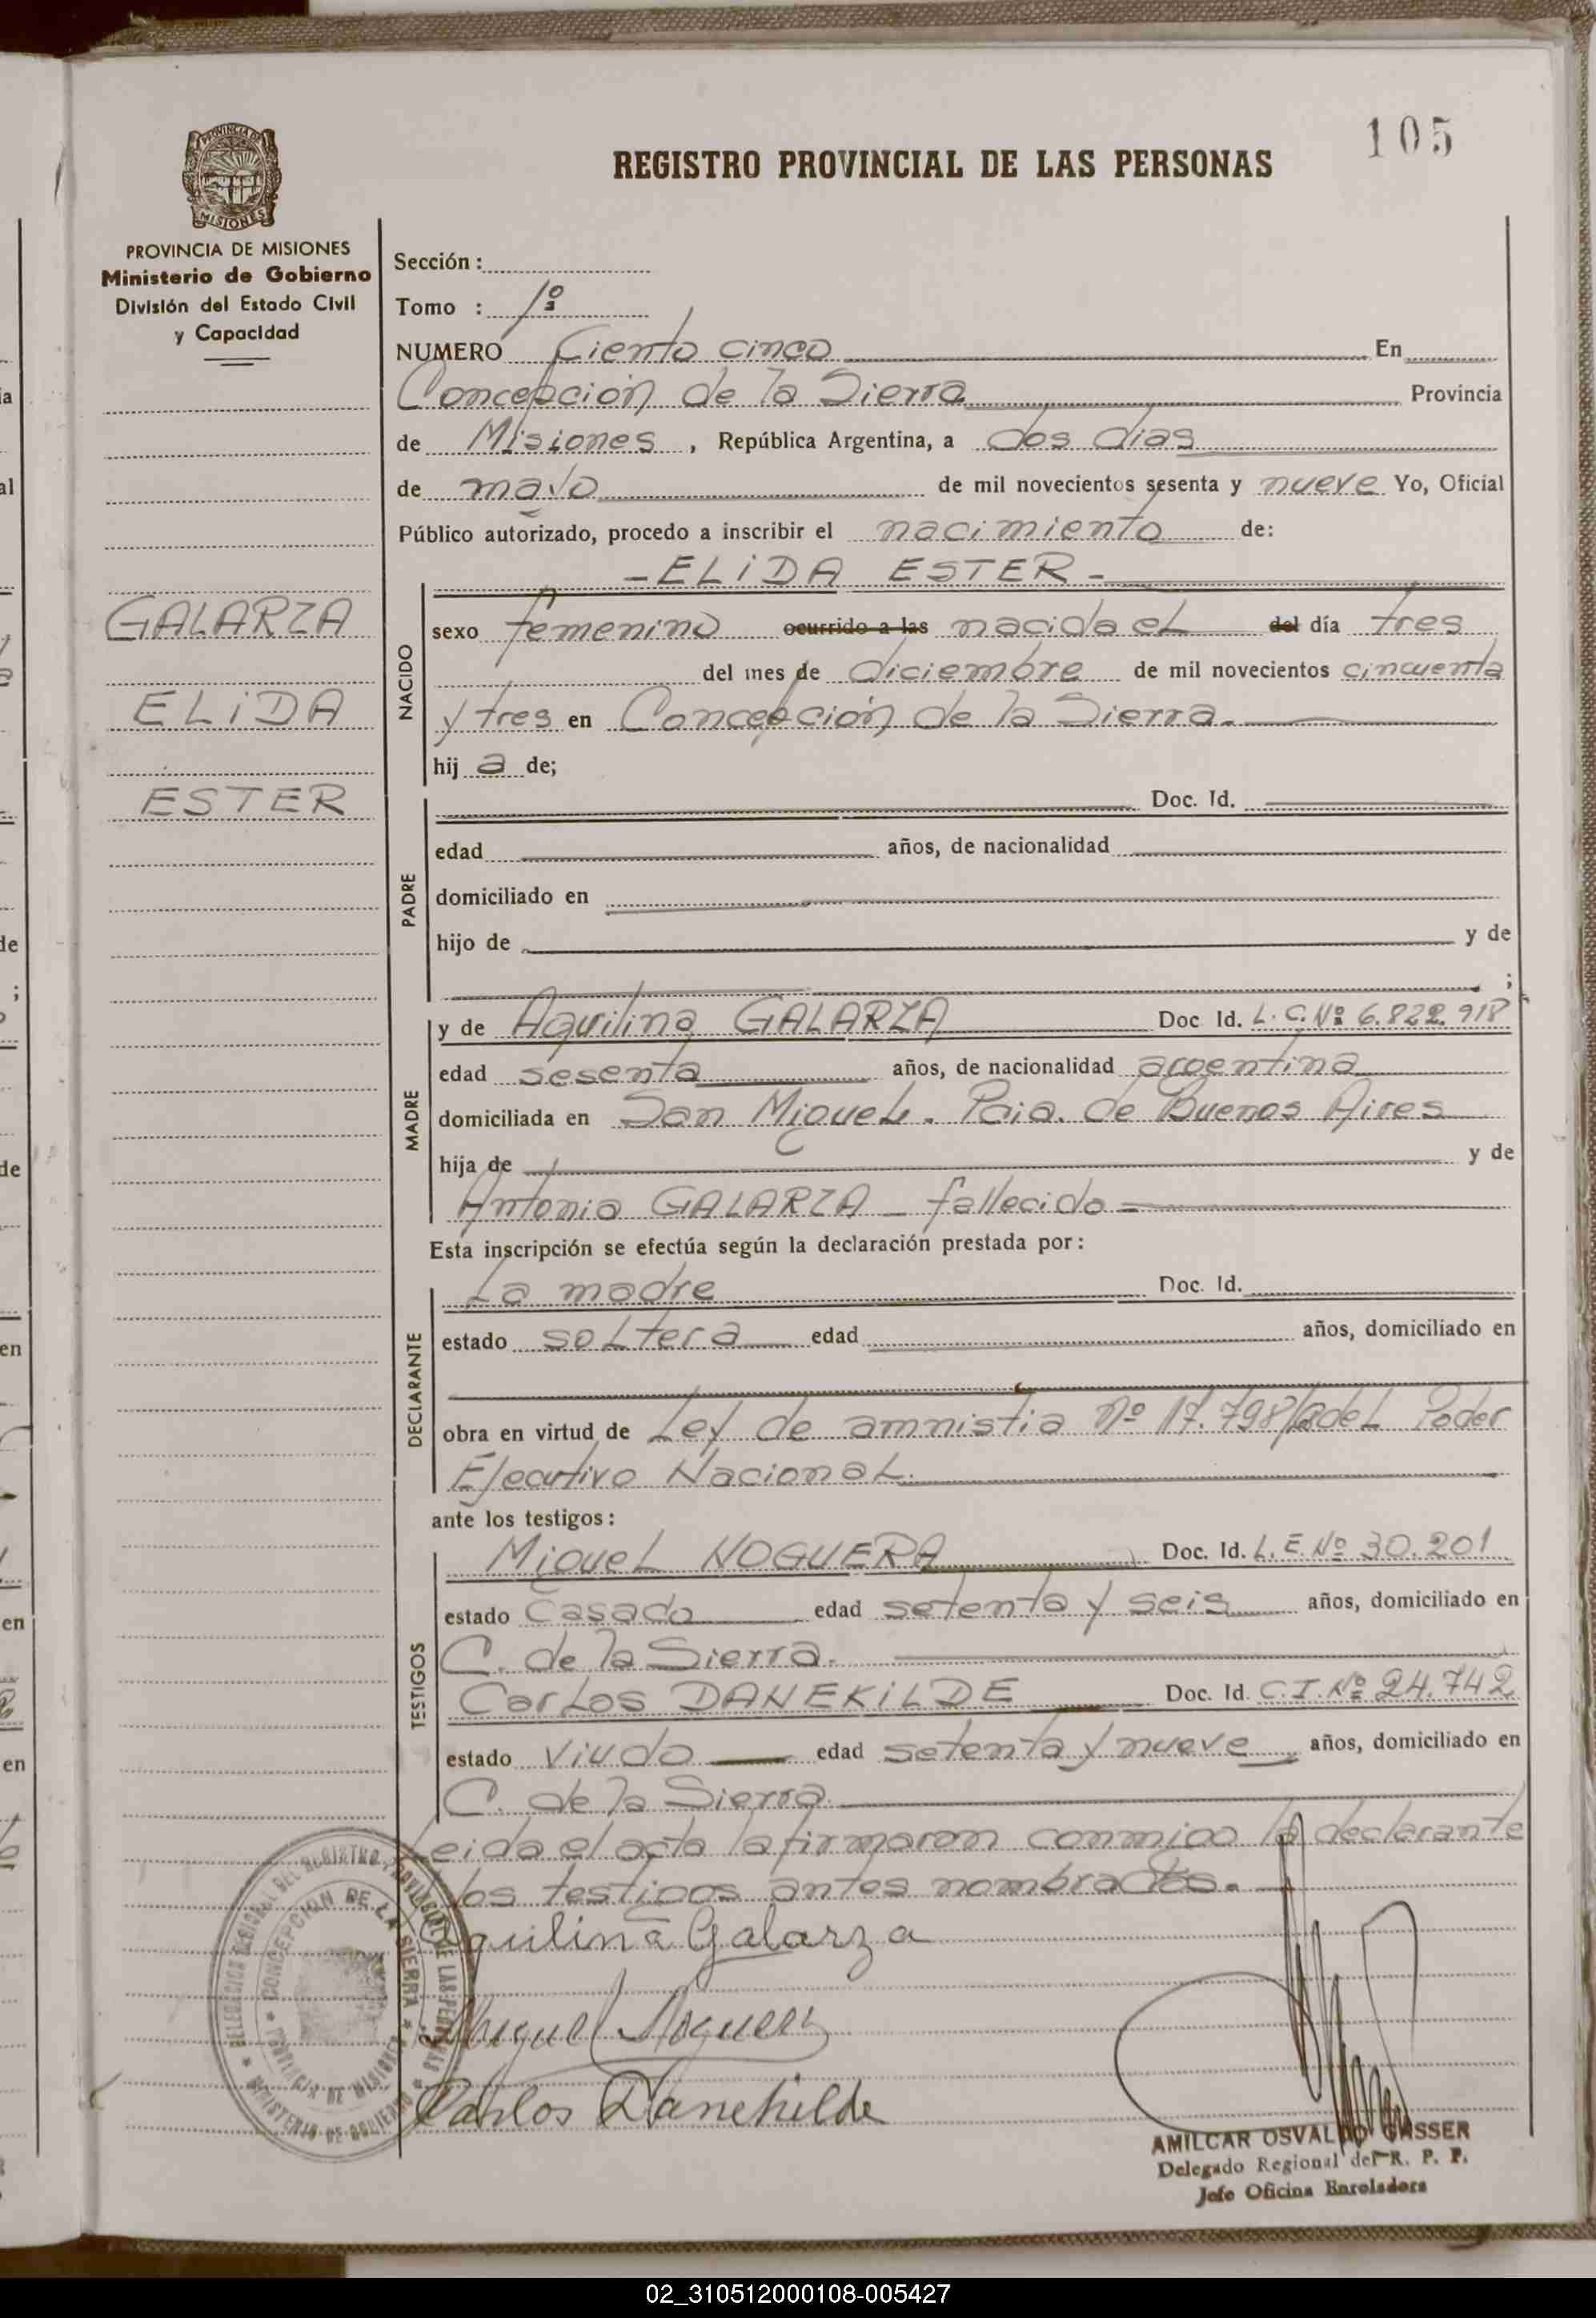 105
REGISTRO PROVINCIAL DE LAS PERSONAS
PROVINCIA DE
MISIONES
PROVINCIA DE MISIONES
Ministerio de Gobierno
División del Estado Civil
y Capacidad
GALARZA
ELIDA
ESTER
Sección :
Tomo : 1º
NUMERO Ciento cinco En
Concepción de la Sierra Provincia
de Misiones , República Argentina, a dos dias
de mayo de mil novecientos sesenta y nueve Yo, Oficial
Público autorizado, procedo a inscribir el nacimiento de:
- ELIDA ESTER -
NACIDO
sexo femenino ocurrido a las nacida el del día tres
del mes de diciembre de mil novecientos cincuenta
y tres en Concepción de la Sierra.
hij a de;
PADRE
Doc. Id.
edad años, de nacionalidad
domiciliado en
hijo de y de
;
MADRE
y de Aquilina GALARZA Doc Id. L. C. Nº 6.822.918
edad sesenta años, de nacionalidad argentina
domiciliada en San Miguel. Pcia. de Buenos Aires
hija de y de
Antonia GALARZA - fallecida -
Esta inscripción se efectúa según la declaración prestada por:
DECLARANTE
La madre Doc. Id.
estado soltera edad años, domiciliado en
obra en virtud de Ley de amnistia nº 17.798 del Poder
Ejecutivo Nacional.
ante los testigos:
TESTIGOS
Miguel NOGUERA Doc. Id. L. E. Nº 30.201
estado Casado edad setenta y seis años, domiciliado en
C. de la Sierra.
Carlos DANEKILDE Doc. Id. C. I. Nº 24.742
estado Viudo edad setenta y nueve años, domiciliado en
C. de la Sierra.
Leida el acta la firmaron conmigo la declarante
y los testigos antes nombrados.
Aquilina Galarza
Miguel Noguera
Carlos Danekilde
DELEGACION REGIONAL DEL REGISTRO PROVINCIAL DE LAS PERSONAS * MINISTERIO DE GOBIERNO *
CONCEPCION DE LA SIERRA * PROVINCIA DE MISIONES *
AMILCAR OSVALDO GASSER
Delegado Regional del R. P. P.
Jefe Oficina Enroladora
02_310512000108-005427